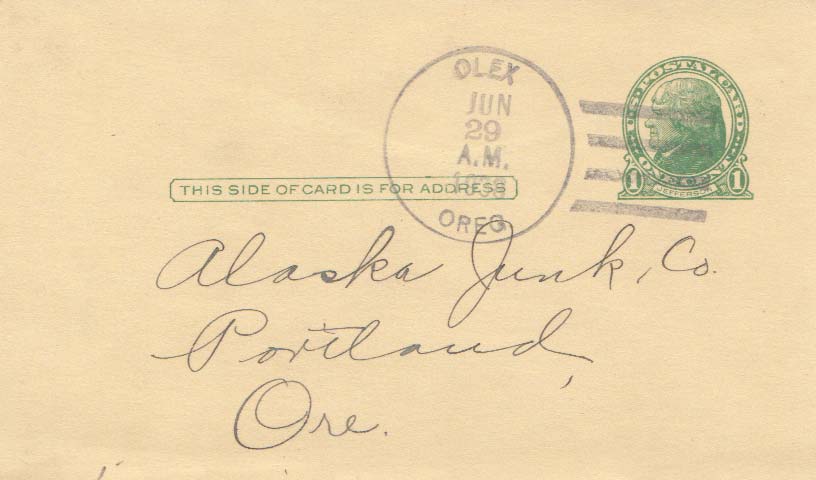 OLEX
JUN
29
A.M.
OREG
U.S. POSTAL CARD
ONE CENT
1 JEFFERSON 1
THIS SIDE OF CARD IS FOR ADDRESS
Alaska Junk, Co.
Portland,
Ore.